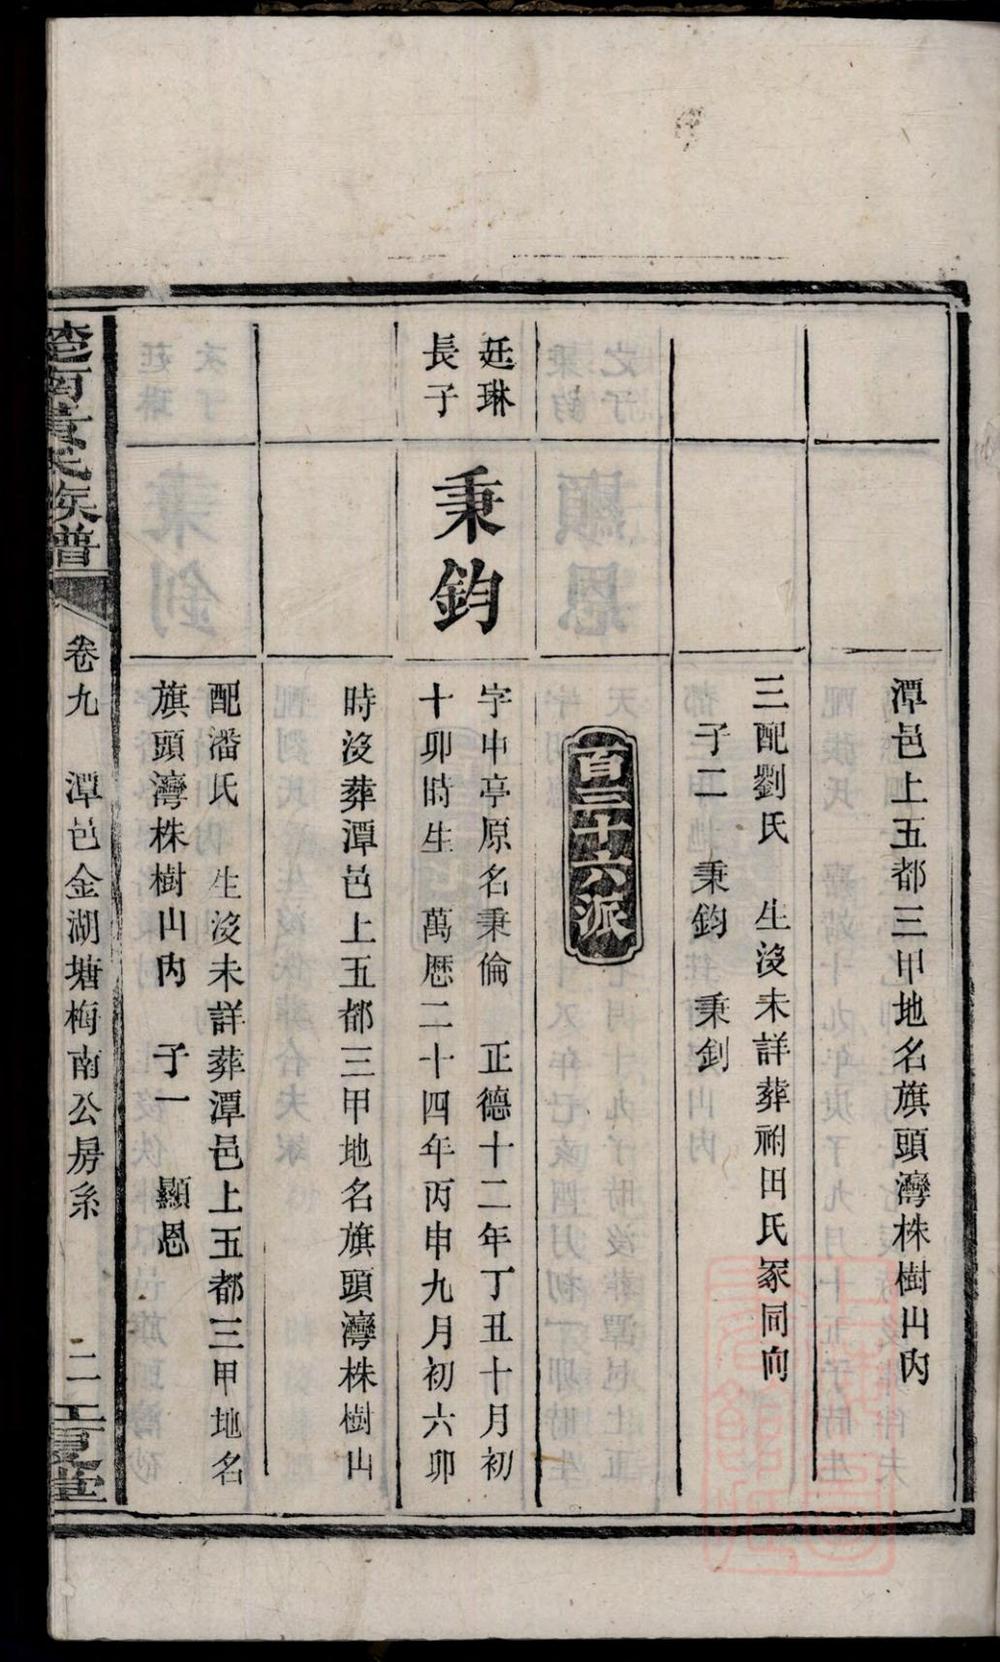 潭邑上五都三甲地名旗頭灣株樹山內
三配劉氏　生沒未詳葬祔田氏冢同向
子二　秉鈞　秉釗
百三十六派
廷琳
長子
秉鈞
字中亭原名秉倫　正德十二年丁丑十月初
十卯時生　萬歷二十四年丙申九月初六卯
時沒葬潭邑上五都三甲地名旗頭灣株樹山
配潘氏　生沒未詳葬潭邑上五都三甲地名
旗頭灣株樹山內　子一　顯恩
楚南黃氏族譜
卷九　潭邑金湖塘梅南公房系　二　江夏堂